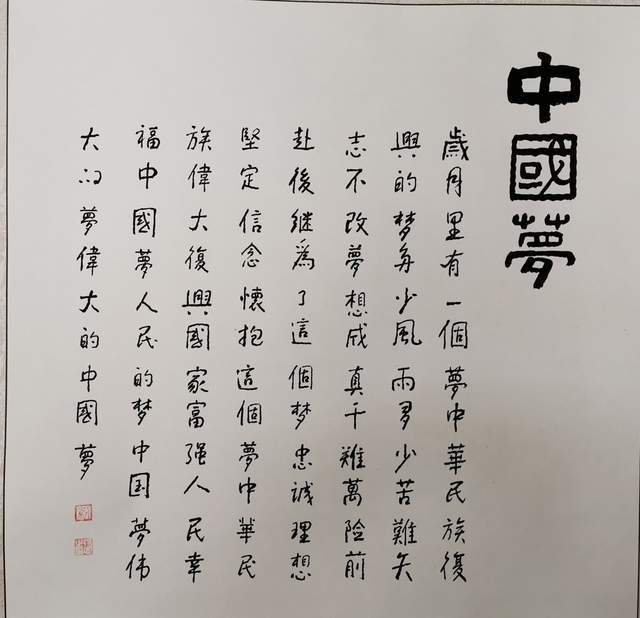 中國夢
歲月里有一個夢中華民族復
興的梦多少風雨多少苦難矢
志不改夢想成真千難萬險前
赴後继為了這個梦忠誠理想
堅定信念懷抱這個夢中華民
族偉大復興國家富强人民幸
福中國夢人民的梦中国夢伟
大的夢偉大的中國夢